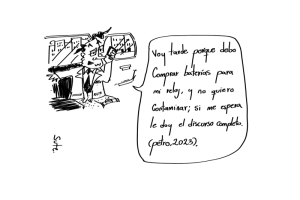 Voy tarde porque debo
Comprar baterías para
mi reloj, y no quiero
Contaminar; si me espera
le doy el discurso completo.
(petro.2023).